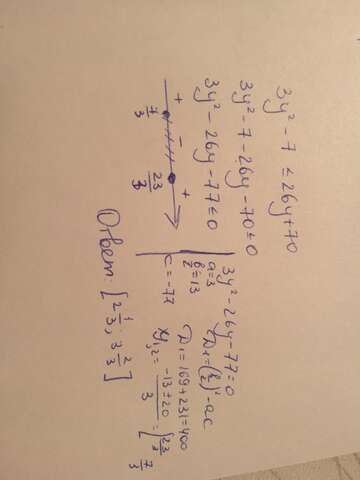 3y² - 7 ≤ 26y + 70
3y² - 7 - 26y - 70 ≤ 0
3y² - 26y - 77 ≤ 0
+ - +
7/3 23/3
3y² - 26y - 77 = 0
a = 3
b/2 = 13
c = -77
D₁ = (b/2)² - ac
D₁ = 169 + 231 = 400
y₁,₂ = (-13 ± 20)/3 = [23/3
7/3
Ответ: [2 1/3; 3 2/3]